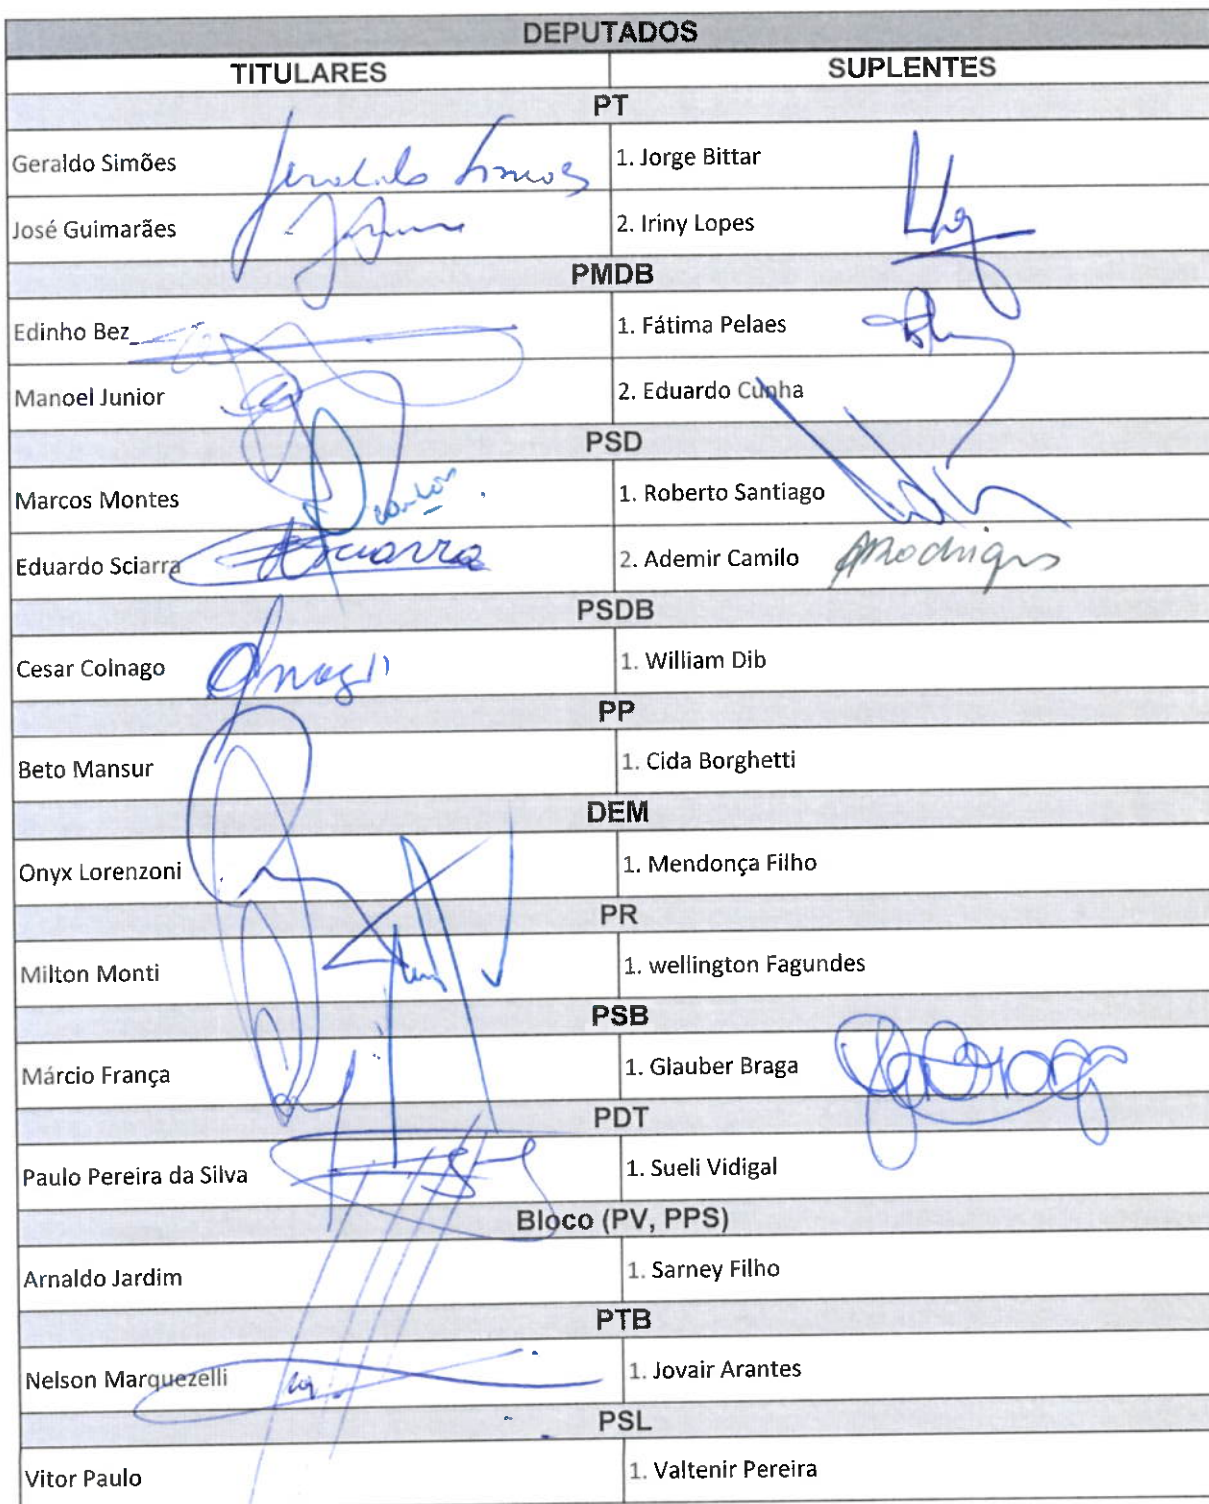 DEPUTADOS
TITULARES SUPLENTES
PT
Geraldo Simões 1. Jorge Bittar
José Guimarães 2. Iriny Lopes
PMDB
Edinho Bez 1. Fátima Pelaes
Manoel Junior 2. Eduardo Cunha
PSD
Marcos Montes 1. Roberto Santiago
Eduardo Sciarra 2. Ademir Camilo
PSDB
Cesar Colnago 1. William Dib
PP
Beto Mansur 1. Cida Borghetti
DEM
Onyx Lorenzoni 1. Mendonça Filho
PR
Milton Monti 1. wellington Fagundes
PSB
Márcio França 1. Glauber Braga
PDT
Paulo Pereira da Silva 1. Sueli Vidigal
Bloco (PV, PPS)
Arnaldo Jardim 1. Sarney Filho
PTB
Nelson Marquezelli 1. Jovair Arantes
PSL
Vitor Paulo 1. Valtenir Pereira